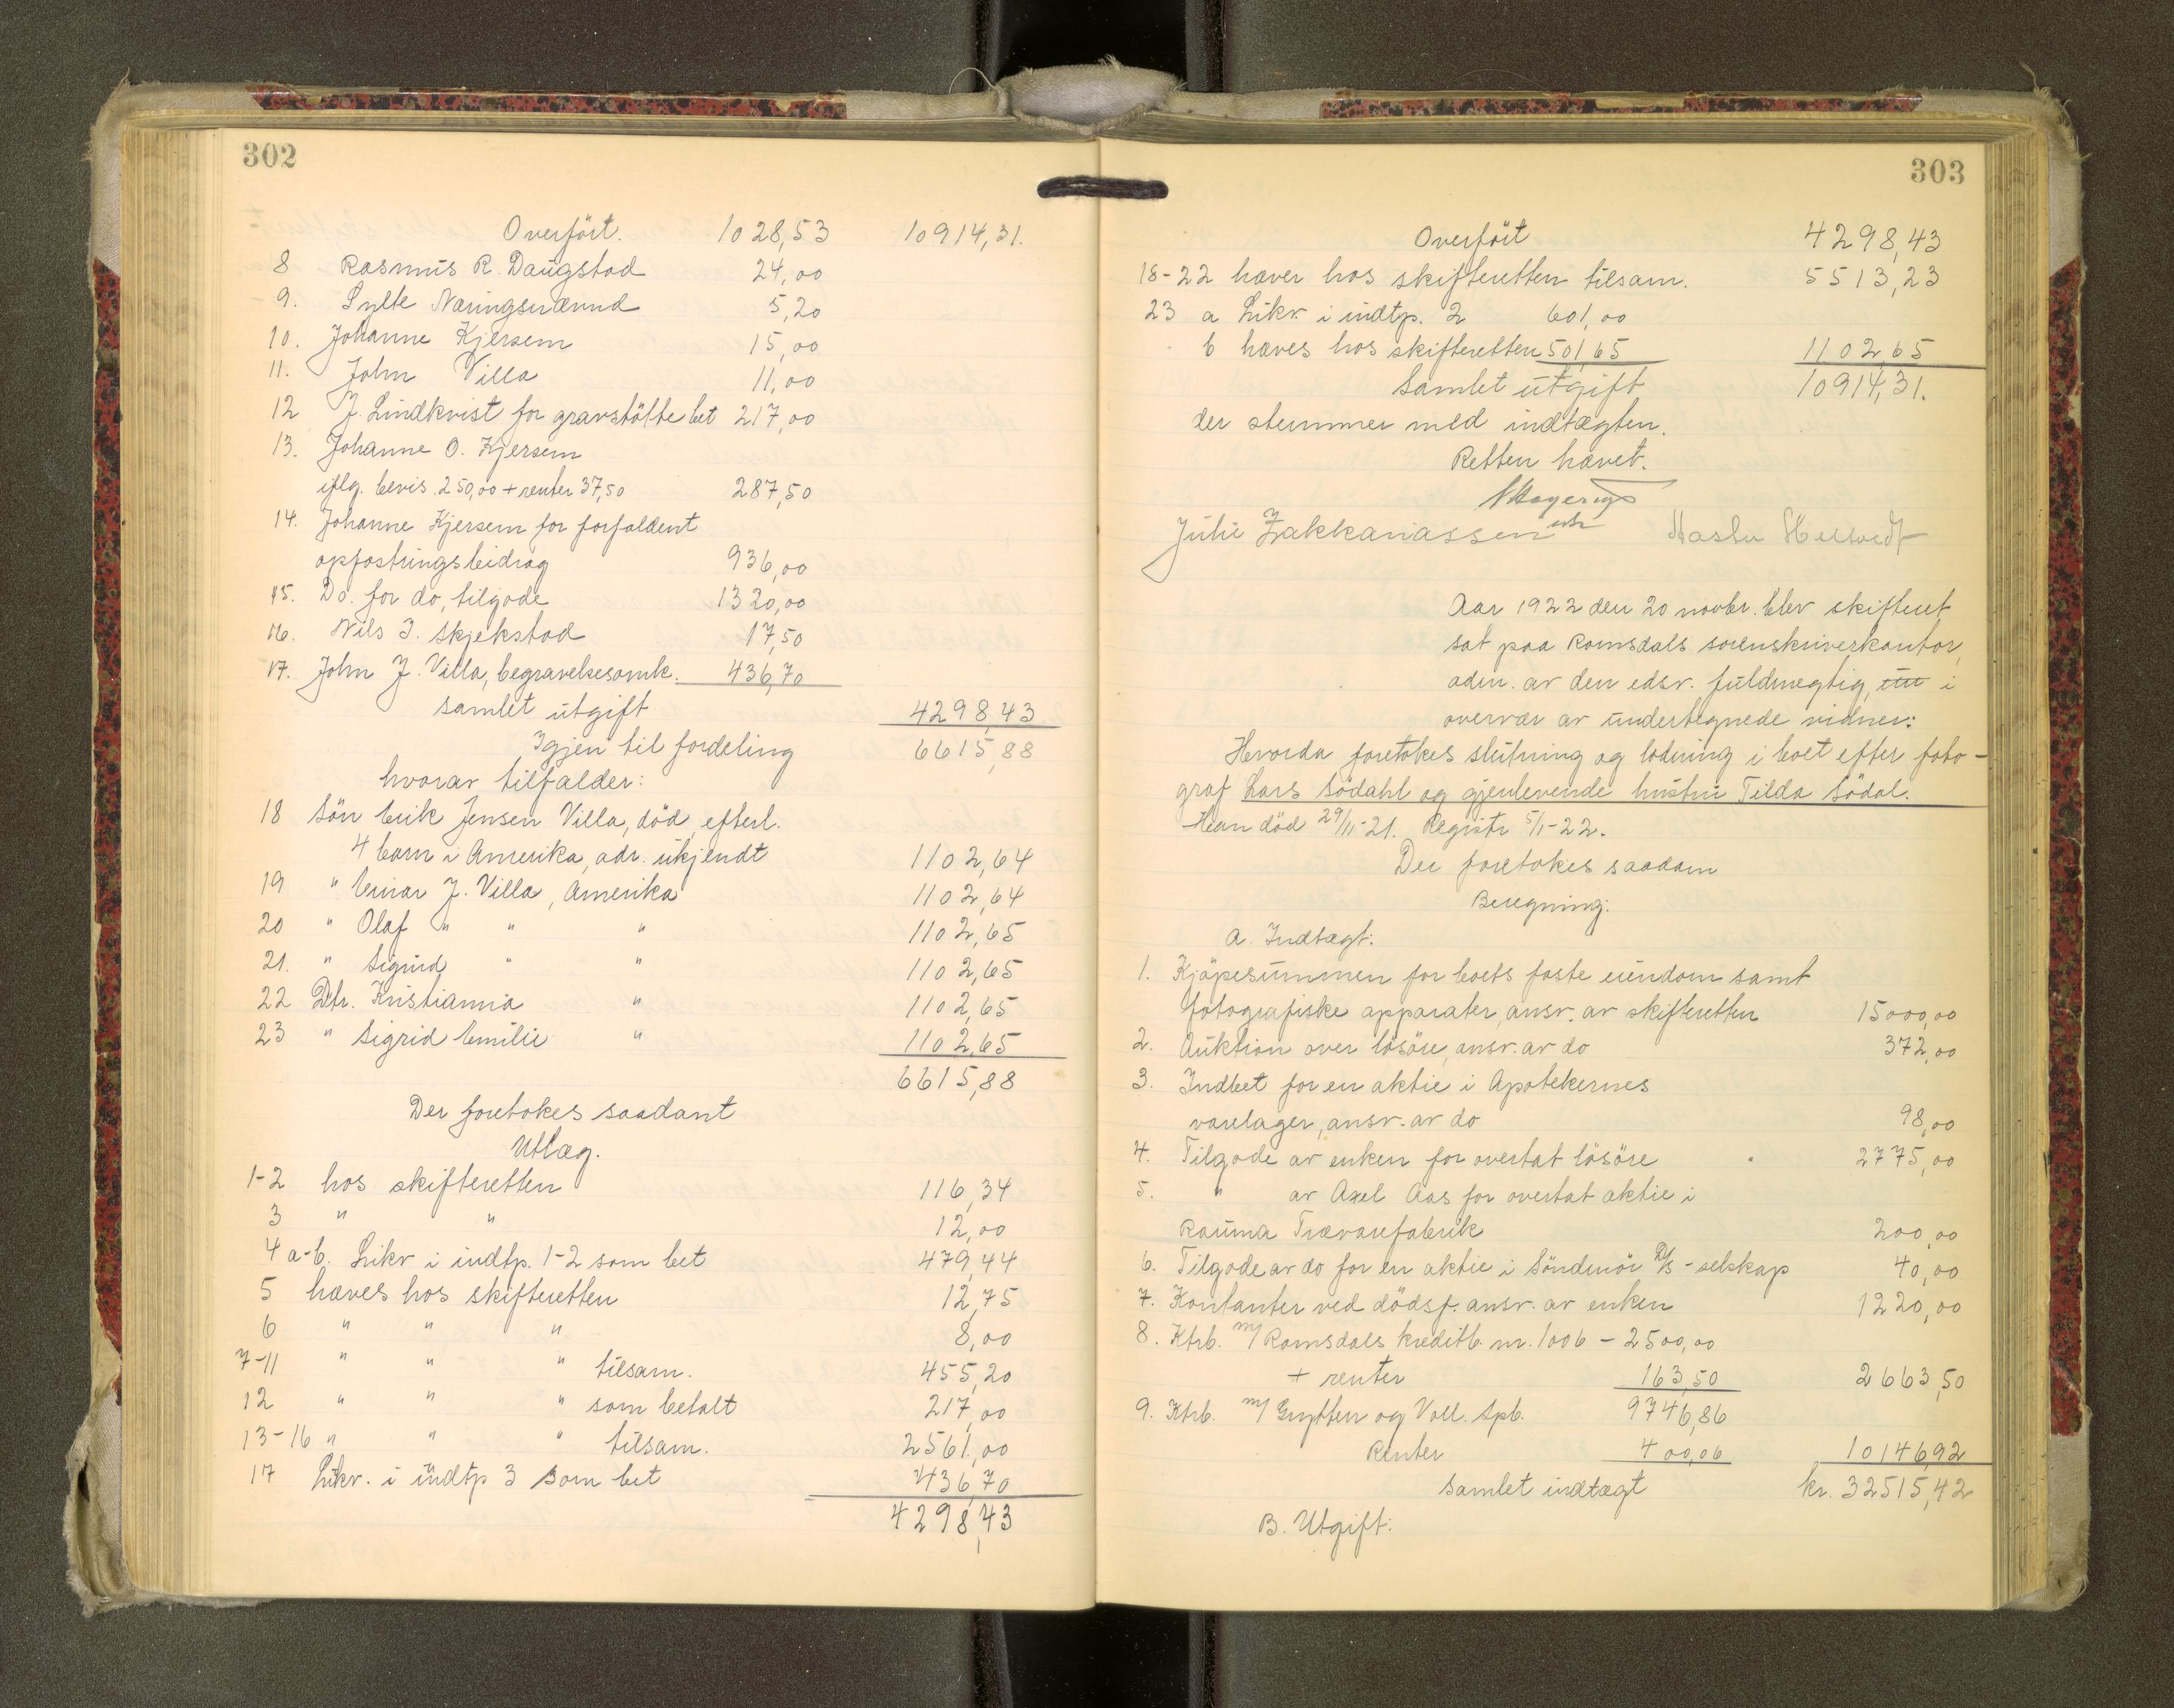 302
Overfört. 1028,53 10914,31.
8 Rasmus R. Daugstad 24,00
9. Sylte Næringsnævnd 5,20
10. Johanne Kjersem 15,00
11. John Villa 11,00
12 J. Lindkvist for gravstötte bet 217,00
13. Johanne O. Kjersem
iflg. bevis 250,00 + renter 37,50 287,50
14. Johanne Kjersem for forfaldent
opfostringsbidrag 936,00
15. Do. for do, tilgode 1320,00
16. Nils J. Skjekstad 17,50
17. John J. Villa, begravelsesomk. 436,70
Samlet utgift 4298,43
Igjen til fordeling 6615,88
hvorav tilfalder:
18 Sön Erik Jensen Villa, död, efterl.
4 barn i Amerika, adr. ukjendt 1102,64
19 " Einar J. Villa, Amerika 1102,64
20 " Olaf " " " 1102,65
21. " Sigurd " " 1102,65
22 Dtr. Kristianna " 1102,65
23 " Sigrid Emilie " 1102,65
6615,88
Der foretokes saadant
Utlæg.
1-2 hos skifteretten 116,34
3 " " 12,00
4 a-b. Likv i indtp. 1-2 som bet 479,44
5 hæves hos skifteretten 12,75
6 " " " 8,00
7-11 " " " tilsam. 455,20
12 " " " som betalt 217,00
13-16 " " " tilsam. 2561,00
17 Likv. i indtp 3 som bet 436,70
4298,43
303
Overfört 4298,43
18-22 hæver hos skifteretten tilsam. 5513,23
23 a Likv. i indtp. 2 601,00
b hæves hos skifteretten 501,65 1102,65
Samlet utgift 10914,31.
der stemmer med indtægten.
Retten hævet.
Julie Zakkariassen
Aar 1922 den 20 novbr. blev skifteret
sat paa Romsdals sorenskriverkontor,
adm. av den edsv. fuldmegtig, i
overvær av undertegnede vidner:
Hvorda foretokes slutning og lodning i boet efter foto-
graf Lars Södahl og gjenlevende hustru Tilda Södal.
Han död 29/11-21. Registr 5/1-22.
Der foretokes saadan
Beregning:
A. Indtægt:
1. Kjöpesummen for boets faste eiendom samt
fotografiske apparater, ansv. av skifteretten 15000,00
2. Auktion over lösöre, ansv. av do 372,00
3. Indbet for en aktie i Apotekernes
varelager, ansv. av do 98,00
4. Tilgode av enken for overtat lösöre 2775,00
5. " av Axel Aas for overtat aktie i
Rauma Trævarefabrik 200,00
6. Tilgode av do for en aktie i Söndmör D/S-selskap 40,00
7. Kontanter ved dödsf. ansv. av enken 1220,00
8. Ktrb. m/ Romsdals kreditb. nr. 1006 - 2500,00
+ renter 163,50 2663,50
9. Ktrb. m/ Grytten og Voll. Spb. 9746,86
Renter 400,06 10146,92
Samlet indtægt kr. 32515,42
B. Utgift: